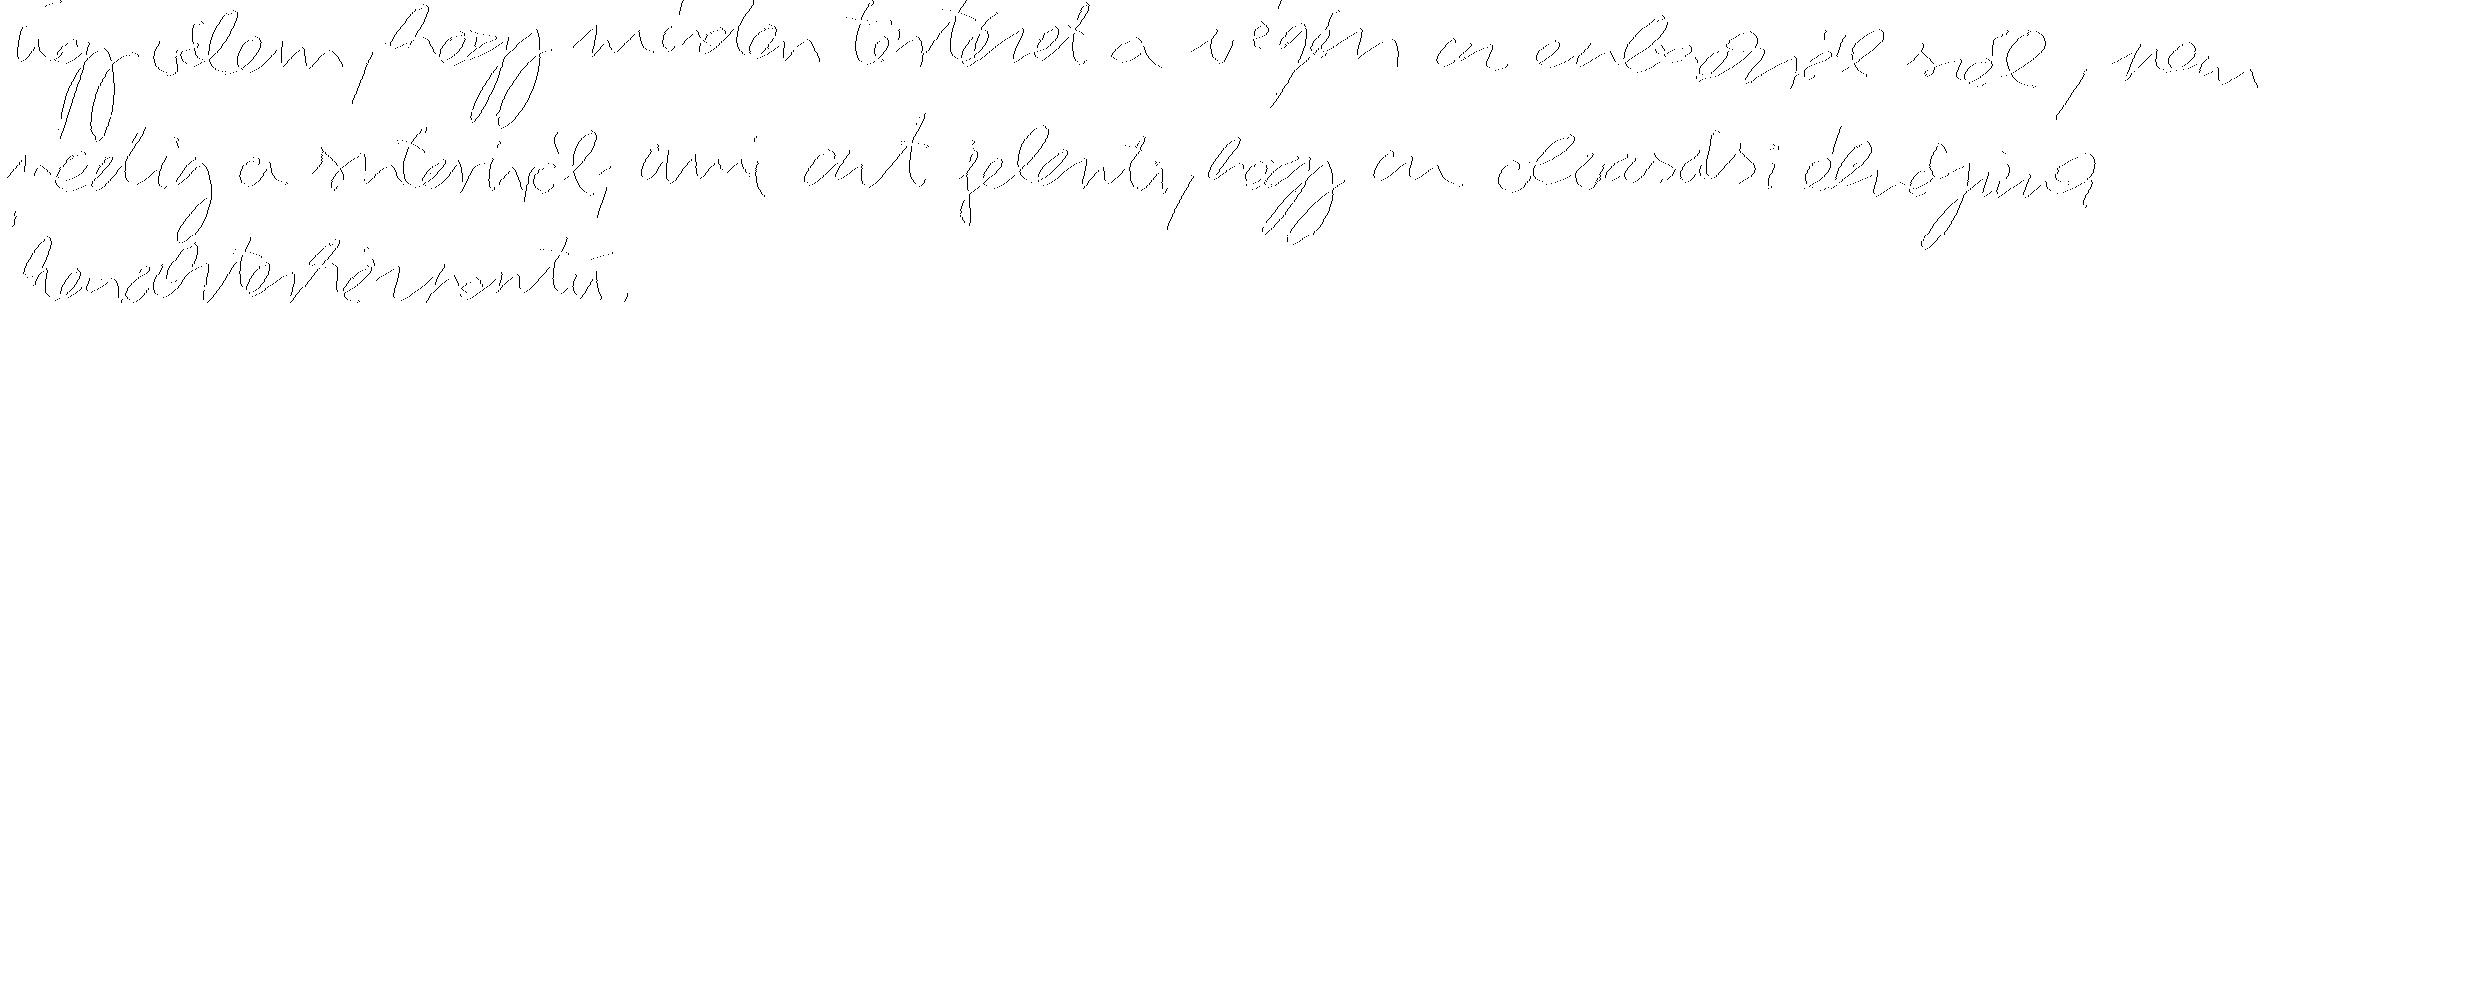 Úgy vélem, hogy minden történet a végén az emberekről szól, nem
pedig a sztorikról, ami azt jelenti, hogy az olvasási élményünk
karakterközpontú.